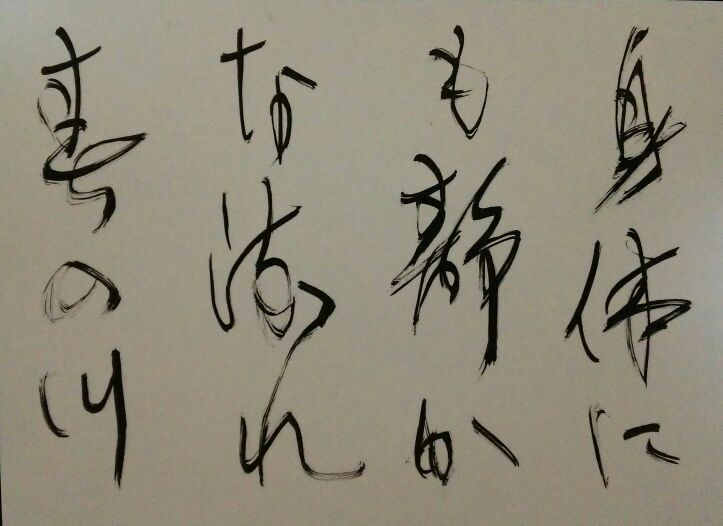 身体に
も静か
な流れ
春の川